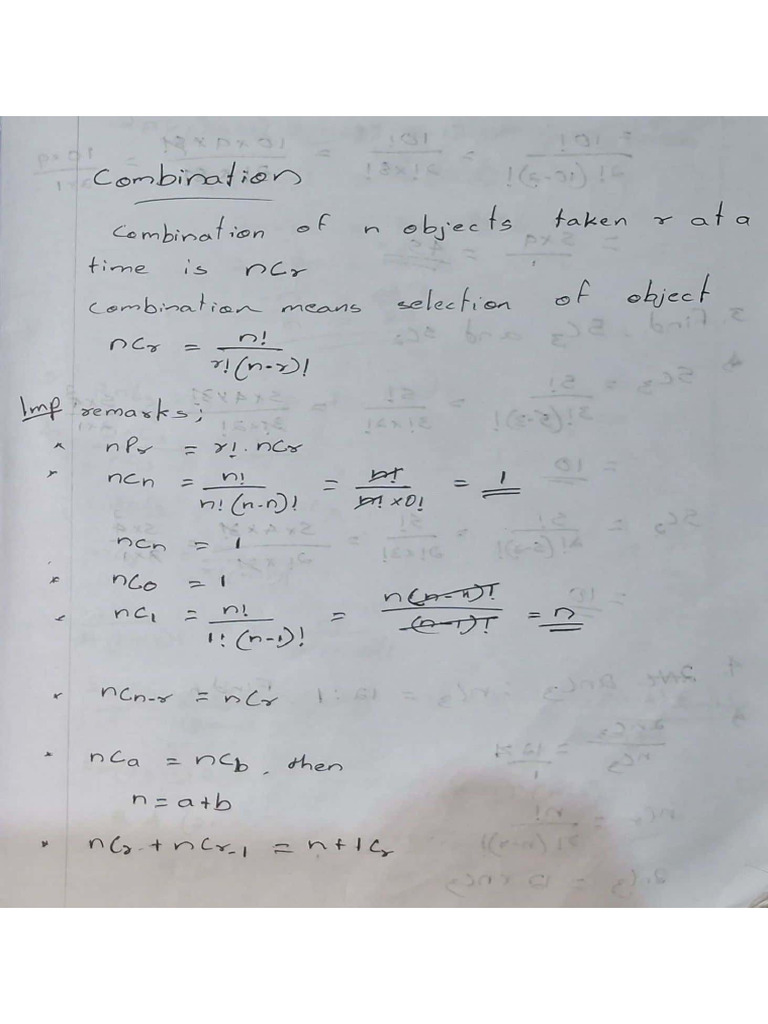 Combination
Combination of n objects taken r at a
time is nCr
Combination means selection of object
nCr = n! / r!(n-r)!
Imp remarks;
* nPr = r!. nCr
* nCn = n! / n!(n-n)! = n! / n! x0! = 1
nCn = 1
* nC0 = 1
* nC1 = n! / 1!(n-1)! = n(n-1)! / (n-1)! = n
* nCn-r = nCr
* nCa = nCb, then
n = a+b
* nCr + nCr-1 = n+1Cr